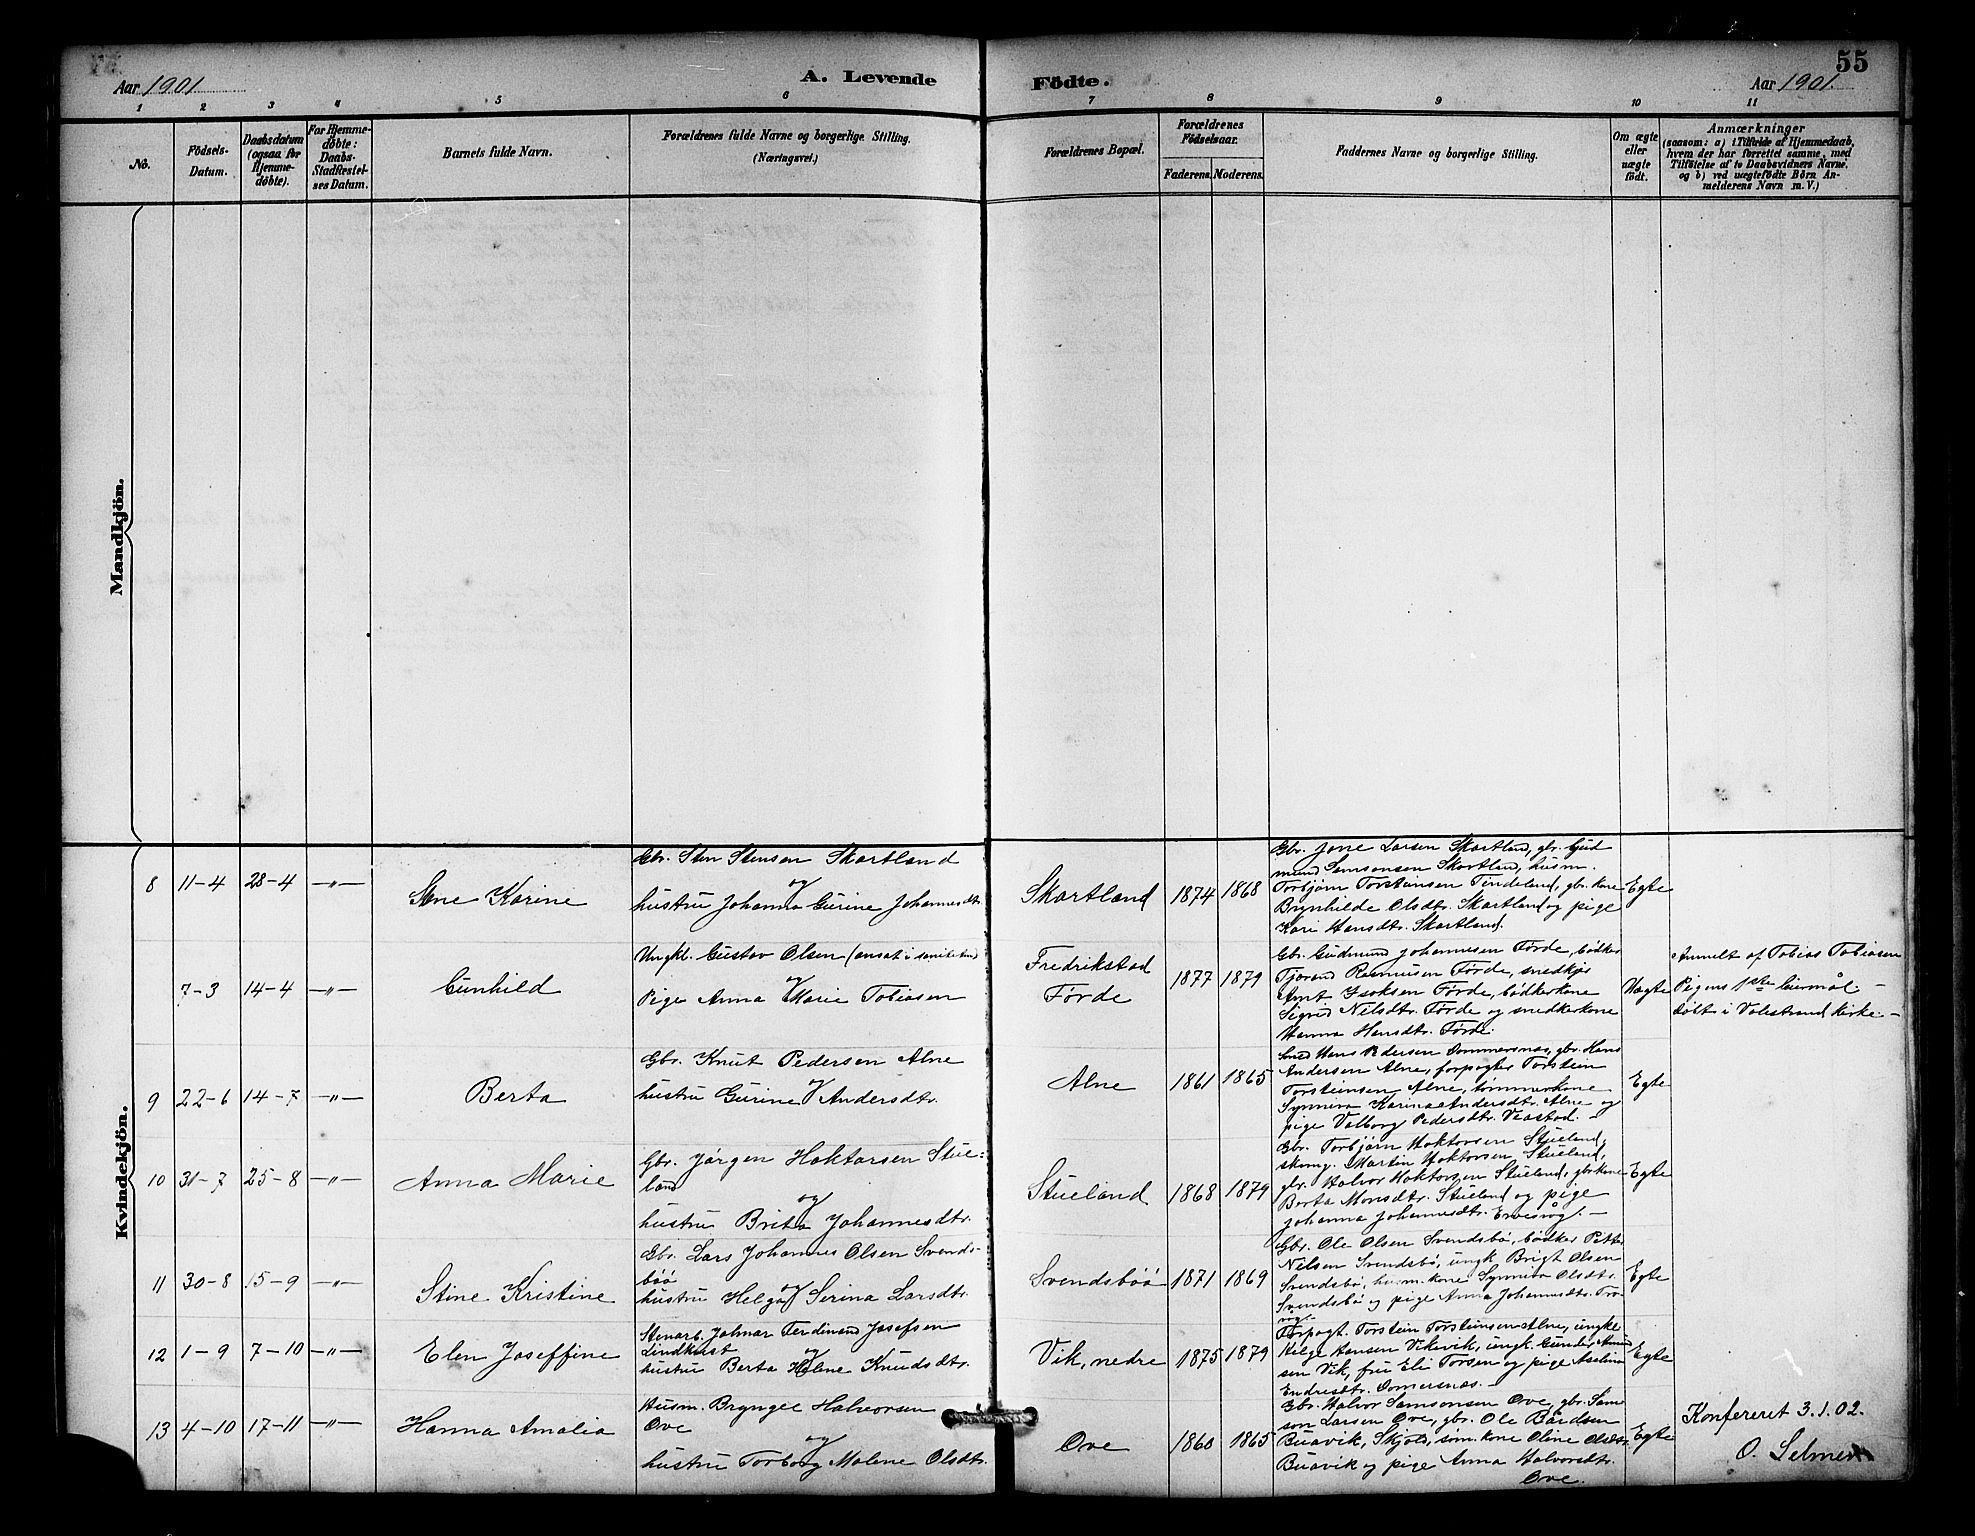 55
Aar 1901
A. Levende
Födte.
Aar 1901.
1 2 3 4 5 6 7 8 9 10 11
No.
Födsels-
Datum.
Daabsdatum
(ogsaa for
Hjemme-
døbte).
For Hjemme-
døbte:
Daabs-
Stadfestel-
ses Datum.
Barnets fulde Navn.
Forældrenes fulde Navne og borgerlige Stilling.
(Næringsvei.)
Forældrenes Bopæl.
Forældrenes
Födselsaar.
Faderens. Moderens.
Faddernes Navne og borgerlige Stilling.
Om ægte
eller
uægte
födt.
Anmærkninger
(saasom: a) i Tilfælde af Hjemmedaab,
hvem der har forrettet samme, med
Tilföielse af to Daabsvidners Navne,
og b) ved uægtefödte Börn An-
melderens Navn m. V.)
Mandkjön.
Kvindekjön.
8 11-4 28-4 -"-
Karine
Gbr. Sten Stensen Skartland
og
hustru Johanna Gurine Johannesdtr.
Skartland
1874 1868
Gbr. Jone Larsen Skartland, gbr. Gud
mund Samsonsen Skartland, husm.
Torbjørn Torstensen Tindeland, gbr. kone
Brynhilde Olsdtr. Skartland og pige
Kari Hansdtr. Skartland.
Egte
7-3 14-4 -"-
Gunhild
Ungkl. Gustav Olsen (ansat i saniteten)
og
Pige Anna Marie Tobiasen
Fredrikstad
Førde
1877 1879
Gbr. Gudmund Johannesen Førde, bødker
Tjørand Rasmusen Førde, snedkjer
Amt Isaksen Førde, bødkerkone
Sigrid Nilsdtr. Førde og snedkerkone
Hanna Hansdtr. Førde.
Uægte
Anmelt af Tobias Tobiasen
Pigens 1ste leiermål. -
døbt i Valestrand kirke. -
9 22-6 14-7 -"-
Berta
Gbr. Knut Pedersen Alne
og
hustru Gurine Andersdtr.
Alne
1861 1865
Smed Hans Pedersen Dommersnæs, gbr. Hans
Andersen Alne, forpagter Torstein
Torsteinsen Alne, tømmerkone
Synneva Karina Andersdtr. Alne og
pige Valborg Pedersdtr. Veastad. -
Egte
10 31-7 25-8 -"-
Anna Marie
Gbr. Jørgen Haktorsen Stue-
land
og
hustru Brita Johannesdtr.
Stueland
1868 1879
Gbr. Torbjørn Haktorsen Stueland,
skomg. Martin Haktorsen Stueland,
gbr. Halvor Haktorsen Stueland, gbr. kone
Berta Monsdtr. Stueland og pige
Johanna Johannesdtr. Ervesvåg. -
Egte
11 30-8 15-9 -"-
Stine Kristine
Gbr. Lars Johannes Olsen Svends-
bøø
og
hustru Helga Serina Larsdtr.
Svendsbøø
1871 1869
Gbr. Ole Olsen Svendsbø, bødker Petter
Nelsen Svendsbø, ungk Brigt Olsen
Svendsbø, husm. kone Synneva Olsdtr.
Svendsbø og pige Anna Johannesdtr.
Egte
12 1-9 7-10 -"-
Elen Joseffine
Stenarb. Jalmar Ferdinand Josefsen
Lindkvist
og
hustru Berta Helene Knudsdtr.
Vik, nedre
1875 1879
Forpagt. Torstein Torsteinsen Alne, ungke
Helge Hansen Vikevik, ungk. Gunder Amund
sen Vik, fru Eli Torsen og pige Aselina
Endresdtr. Domersnæs. -
Egte
13 4-10 17-11 -"-
Hanna Amalia
Husm. Bryngel Halvorsen
Ove
og
hustru Torborg Malene Olsdtr.
Ove
1860 1865
Gbr. Halvor Samsonsen Ove, gbr. Sam-
son Larsen Ove, gbr. Ole Bårdsen
Buavik, Skjold, søm. kone Oline Olsdtr.
Buavik og pige Anna Halvorsdtr.
Ove.
Egte
Konfereret 3.1.02.
O. Selmer